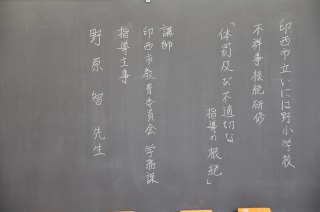 印西市立いには野小学校
不祥事根絶研修
「体罰及び不適切な
指導の根絶」
講師
印西市教育委員会 学務課
指導主事
野原 智 先生